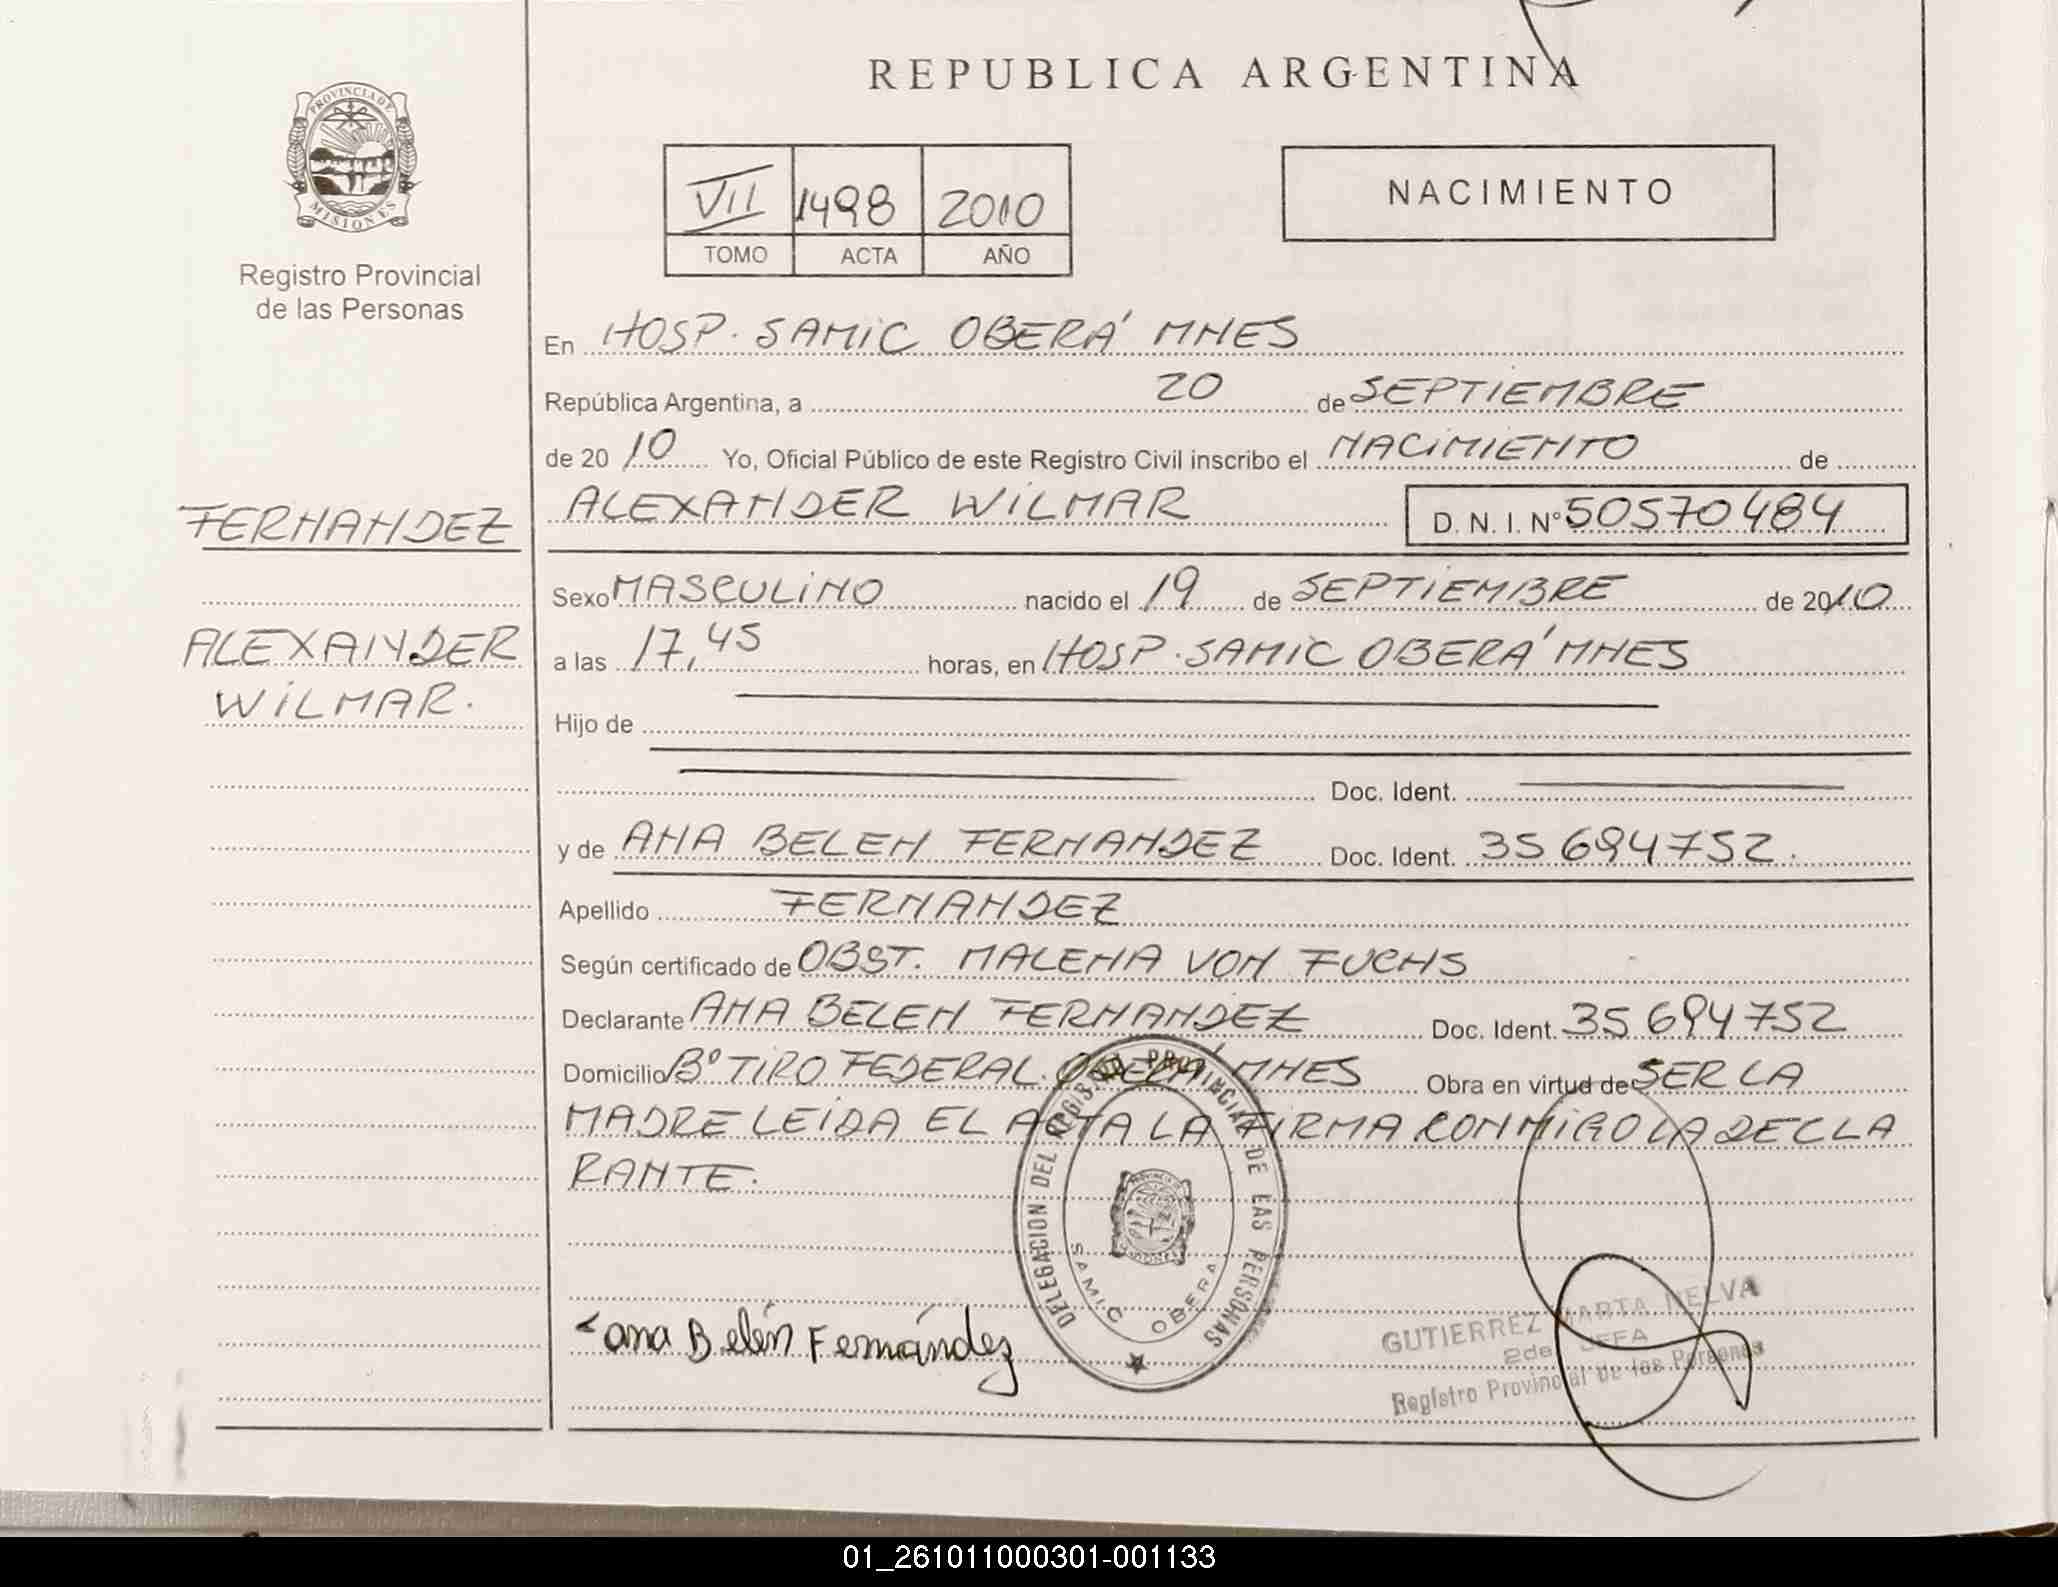 REPUBLICA ARGENTINA
PROVINCIA DE
MISIONES
Registro Provincial
de las Personas
VII 1498 2010
TOMO ACTA AÑO
NACIMIENTO
En HOSP. SAMIC OBERÁ MNES
República Argentina, a 20 de SEPTIEMBRE
de 20 10 Yo, Oficial Público de este Registro Civil inscribo el NACIMIENTO de
ALEXANDER WILMAR D. N. I. N° 50570484
FERNANDEZ
ALEXANDER
WILMAR.
Sexo MASCULINO nacido el 19 de SEPTIEMBRE de 2010
a las 17,45 horas, en HOSP. SAMIC OBERÁ MNES
Hijo de
Doc. Ident.
y de ANA BELEN FERNANDEZ Doc. Ident. 35 694752.
Apellido FERNANDEZ
Según certificado de OBST. MALENA VON FUCHS
Declarante ANA BELEN FERNANDEZ Doc. Ident. 35 694752
Domicilio B° TIRO FEDERAL. OBERÁ MNES Obra en virtud de SER LA
MADRE LEIDA EL ACTA LA FIRMA CONMIGO LA DECLA
RANTE.
DELEGACION DEL REGISTRO PROVINCIAL DE LAS PERSONAS
SAMIC OBERA
ana Belén Fernández
GUTIERREZ MARTA MELVA
2da JEFA
Registro Provincial de las Personas
01_261011000301-001133